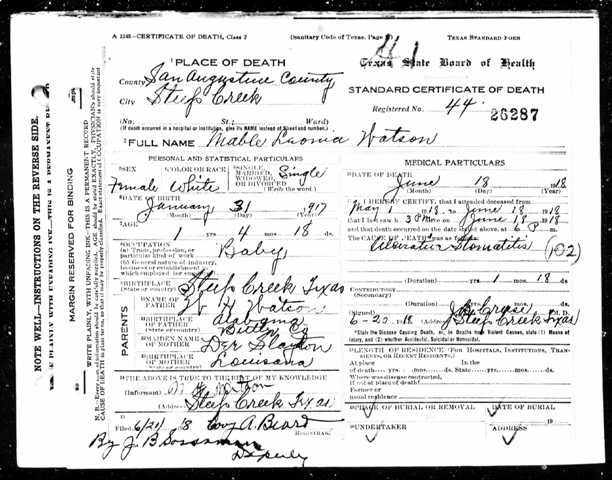 A 1248—CERTIFICATE OF DEATH, Class 2 (Sanitary Code of Texas, Page TEXAS STANDARD FORM
PLACE OF DEATH
Texas State Board of Health
County San Augustine County
STANDARD CERTIFICATE OF DEATH
City Steep Creek
Registered No. 44. 26287
(No. St.; Ward)
(If death occurred in a hospital or institution, give its NAME instead of street and number.)
FULL NAME Mable Watson
PERSONAL AND STATISTICAL PARTICULARS
SEX COLOR OR RACE SINGLE, MARRIED, WIDOWED, OR DIVORCED (Write the word.)
Female White Single
DATE OF BIRTH
January 31 1917
(Month) (Day) (Year)
AGE
1 yrs. 4 mos. 18 ds.
OCCUPATION
(a) Trade, profession, or particular kind of work Baby
(b) General nature of industry, business or establishment in which employed (or employer)
BIRTHPLACE (State or country) Steep Creek Texas
PARENTS
NAME OF FATHER W H Watson
BIRTHPLACE OF FATHER (State or country) Alabama
MAIDEN NAME OF MOTHER
BIRTHPLACE OF MOTHER (State or country) Louisana
THE ABOVE IS TRUE TO THE BEST OF MY KNOWLEDGE
(Informant) W H Watson
(Address) Steep Creek Texas
Filed 6/21 18 A. Beard
REGISTRAR.
By J. B. Deputy
MEDICAL PARTICULARS
DATE OF DEATH
June 18 1918
(Month) (Day) (Year)
I HEREBY CERTIFY, that I attended deceased from
May 1918, to June 18 1918
that I last saw h 3 P M alive on June 18 1918
and that death occurred on the date stated above, at 6 P m.
The CAUSE OF DEATH was as follows:
Ulcerative Stomatitis (102)
(Duration) yrs. 1 mos. 18 ds.
CONTRIBUTORY
(Secondary)
(Duration) yrs. mos. ds.
(Signed) M. D.
6-20 1918 (Address) Steep Creek Texas
*State the Disease Causing Death, or, in Deaths from Violent Causes, state (1) Means of Injury, and (2) whether Accidental, Suicidal or Homicidal.
LENGTH OF RESIDENCE (FOR HOSPITALS, INSTITUTIONS, TRANSIENTS, OR RECENT RESIDENTS.)
At place of death yrs. mos. ds. In the State yrs. mos. ds.
Where was disease contracted, if not at place of death?
Former or usual residence
PLACE OF BURIAL OR REMOVAL DATE OF BURIAL
19
UNDERTAKER ADDRESS
NOTE WELL—INSTRUCTIONS ON THE REVERSE SIDE.
MARGIN RESERVED FOR BINDING
WRITE PLAINLY, WITH UNFADING INK—THIS IS A PERMANENT RECORD